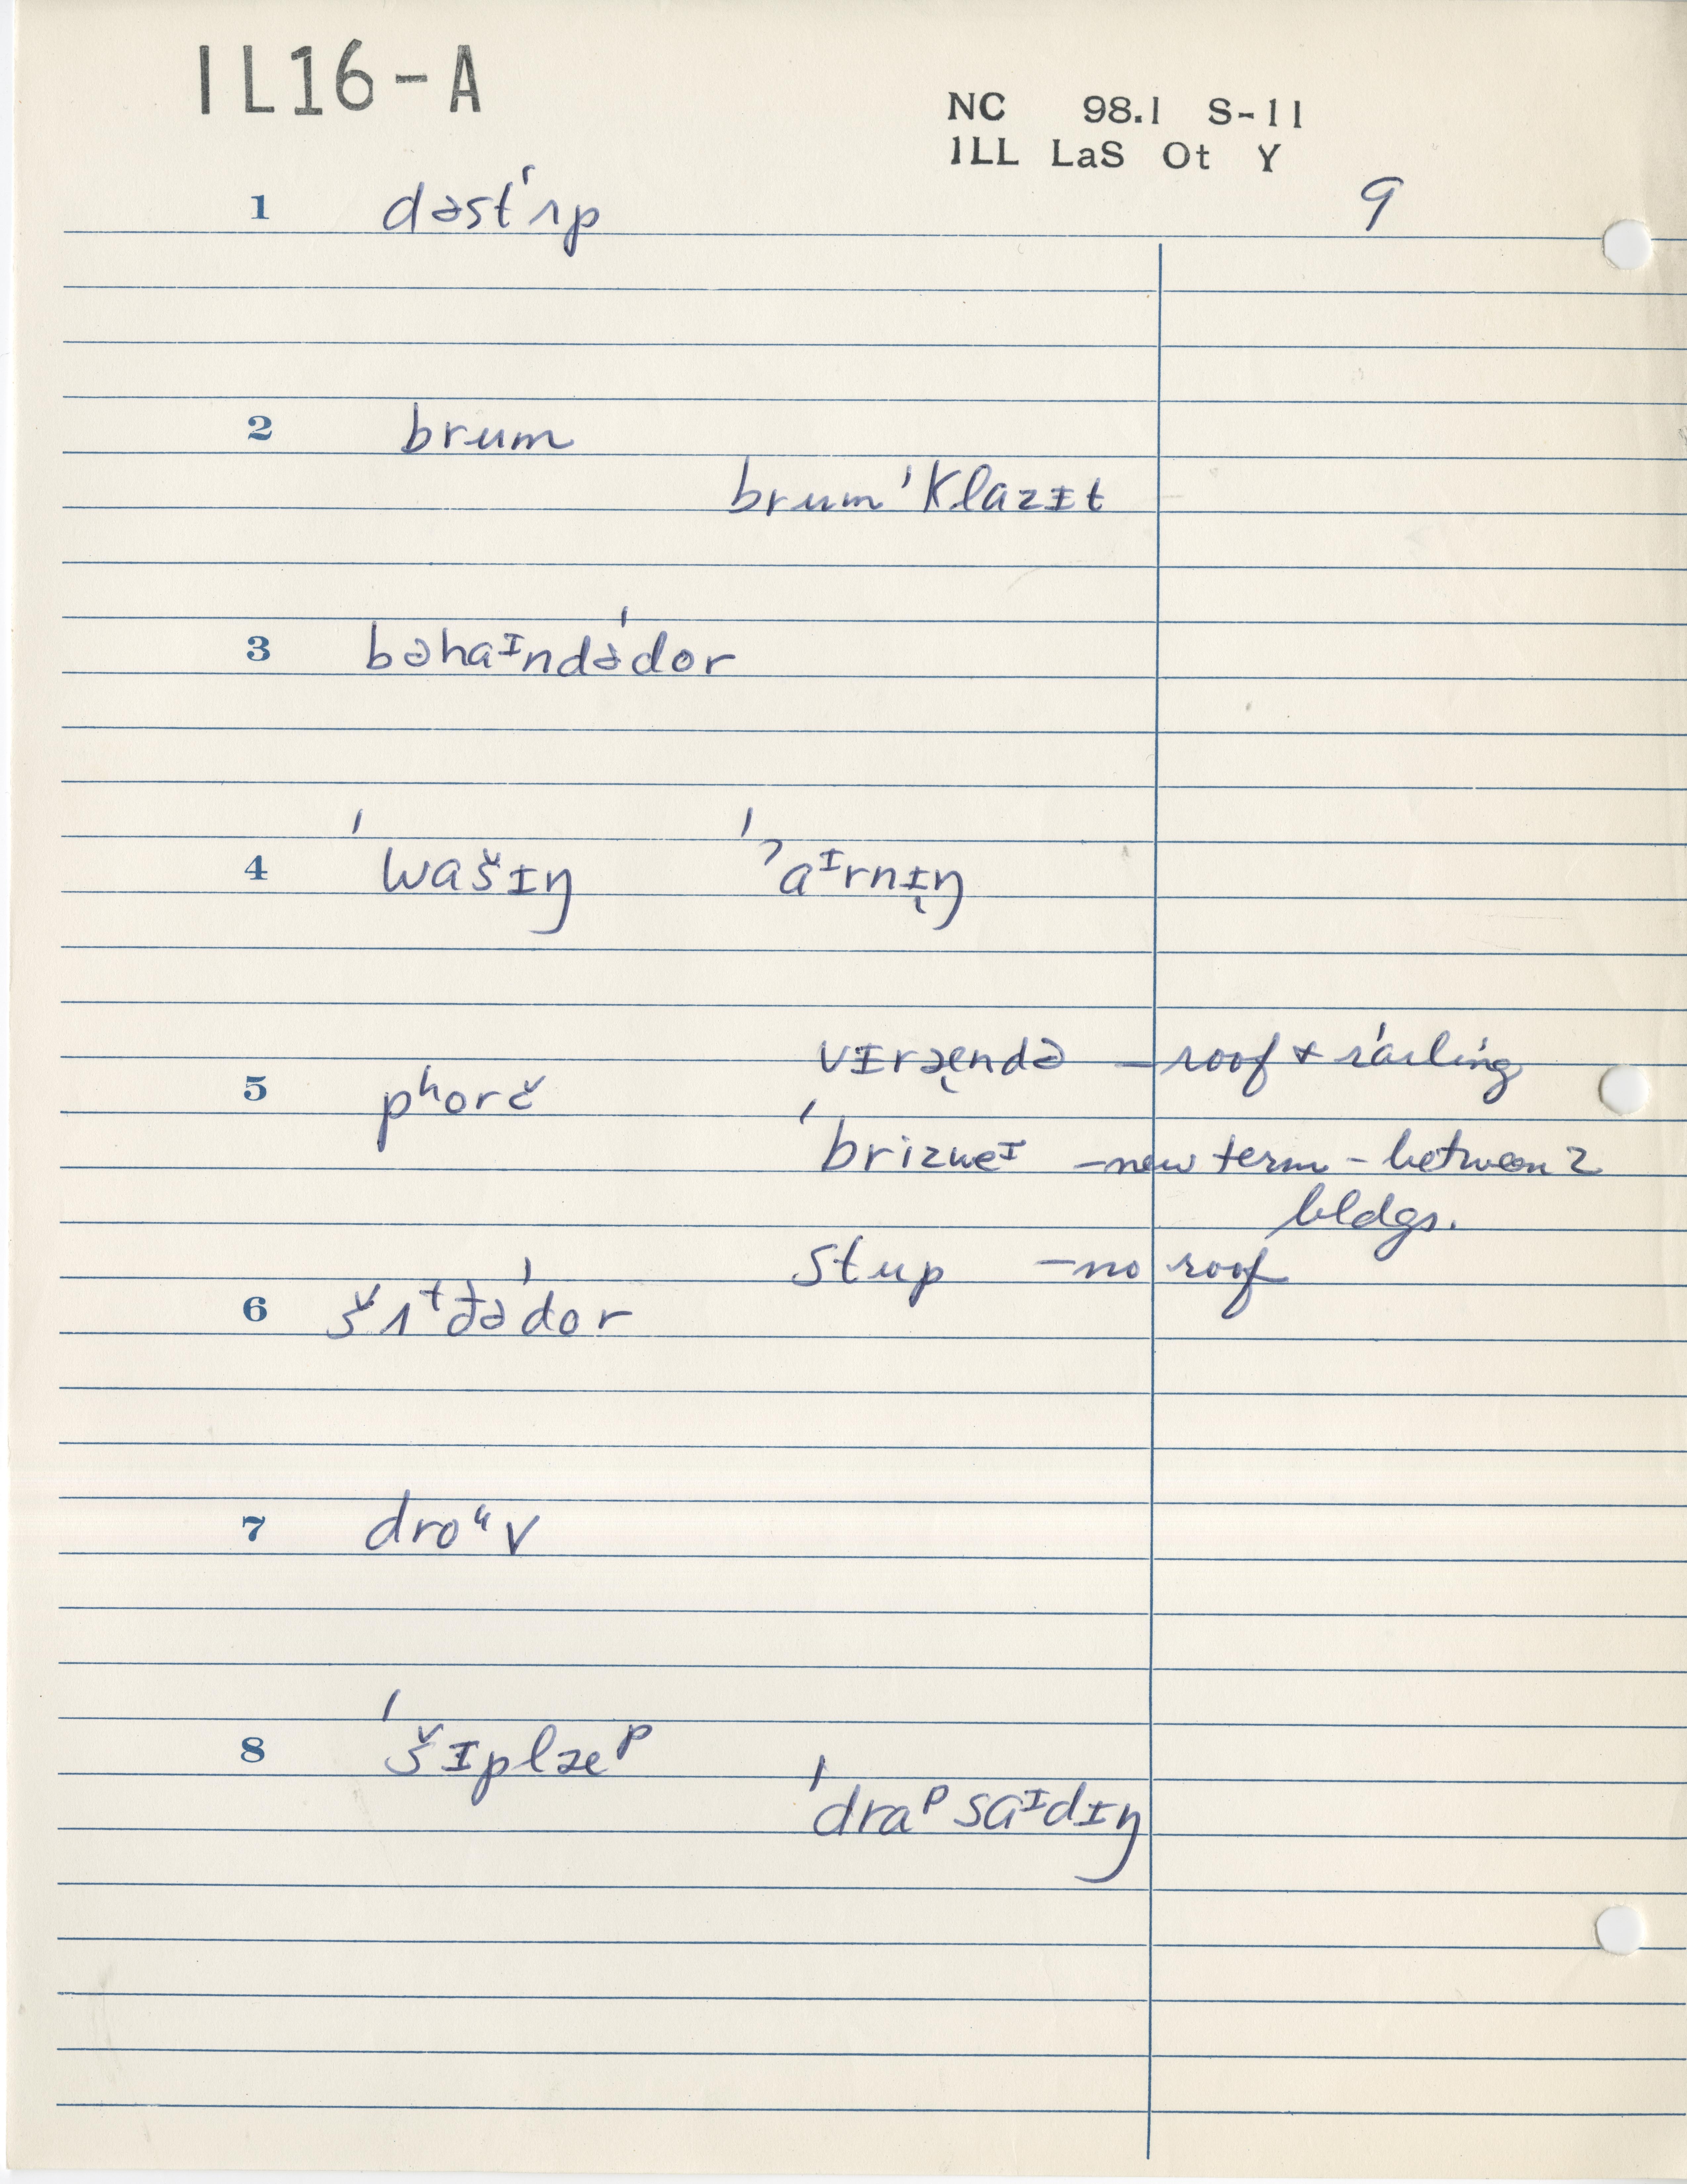 IL16-A
NC 98.1 S-11
ILL LaS Ot Y
9
1 dəst'ʌp
2 brum
brum 'klazɪt
3 bəhaᴵndə'dor
4 'wašɪŋ 'ˀaᴵrnɪ̨ŋ
5 pʰorč
vɪræ̨ndə – roof + railing
'brizweᴵ – new term – between 2
bldgs.
stup – no roof
6 šʌᵗđə'dor
7 droᵘv
8 'šɪplæᵖ
'draᵖsaᴵdɪŋ